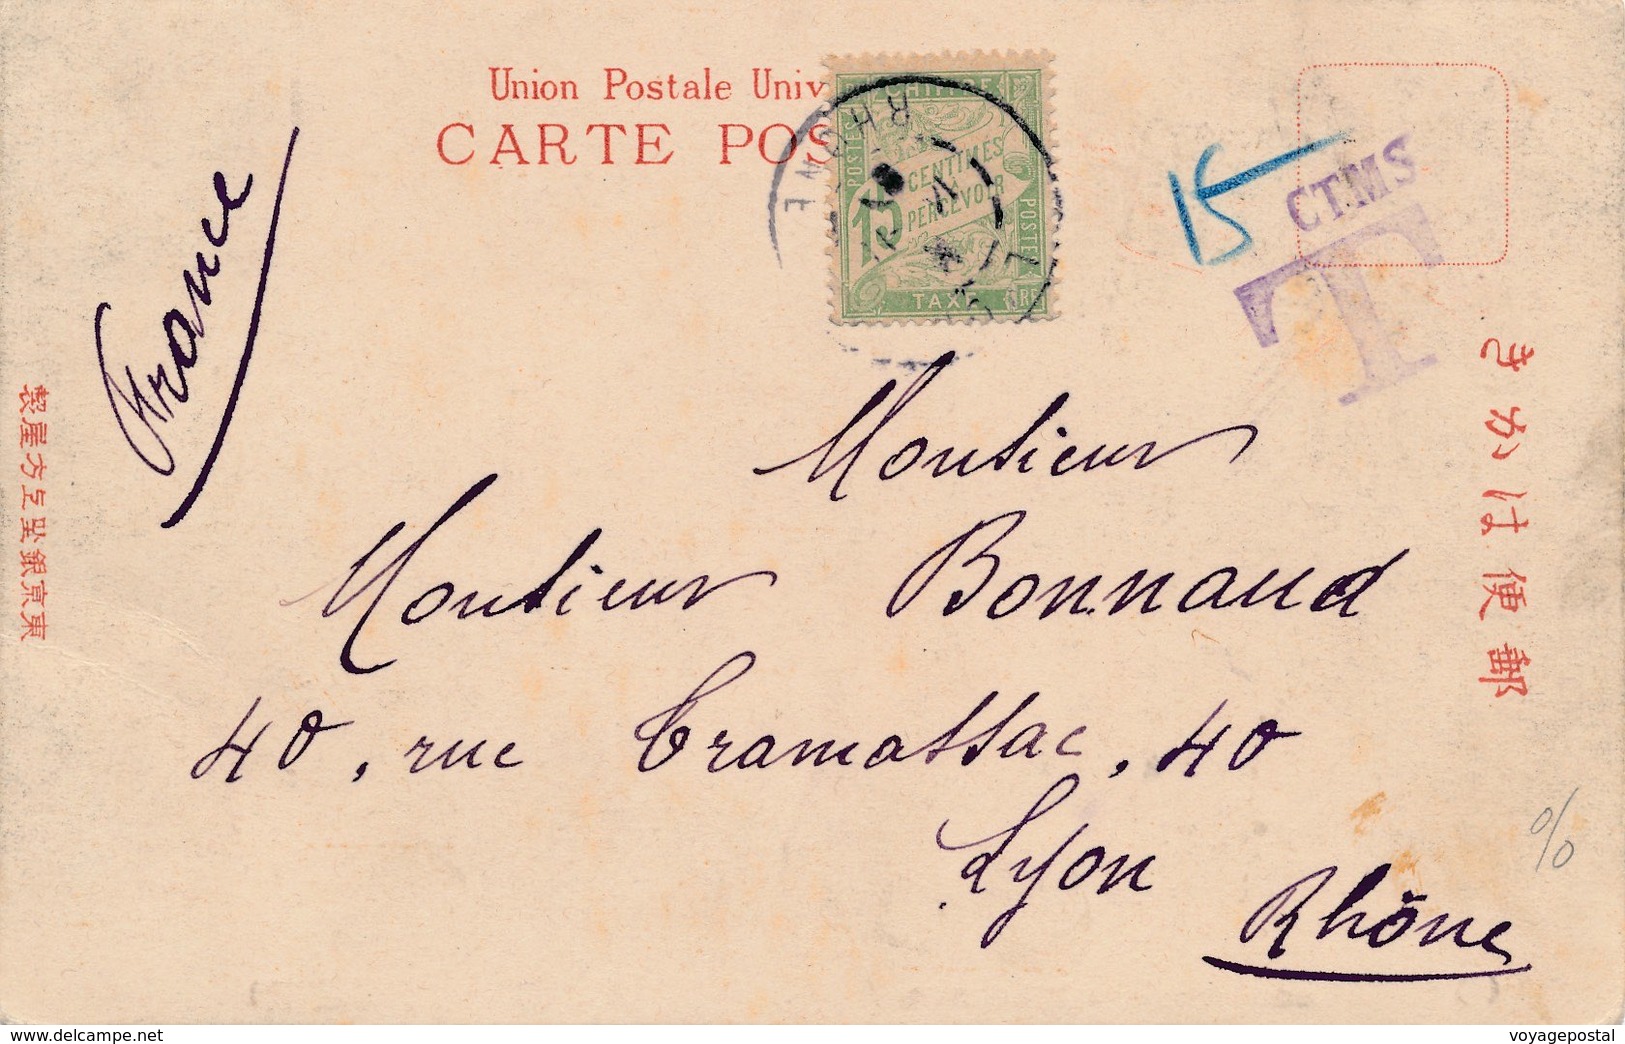 Union Postale Univ
CARTE POS
CHIFFRE
POSTES
15
CENTIMES
A
PERCEVOIR
POSTES
TAXE
RHONE
15
CTMS
T
France
Monsieur
Monsieur Bonnaud
40, rue Tramassac, 40
Lyon
Rhône
郵便はかき
%
www.delcampe.net
voyagepostal